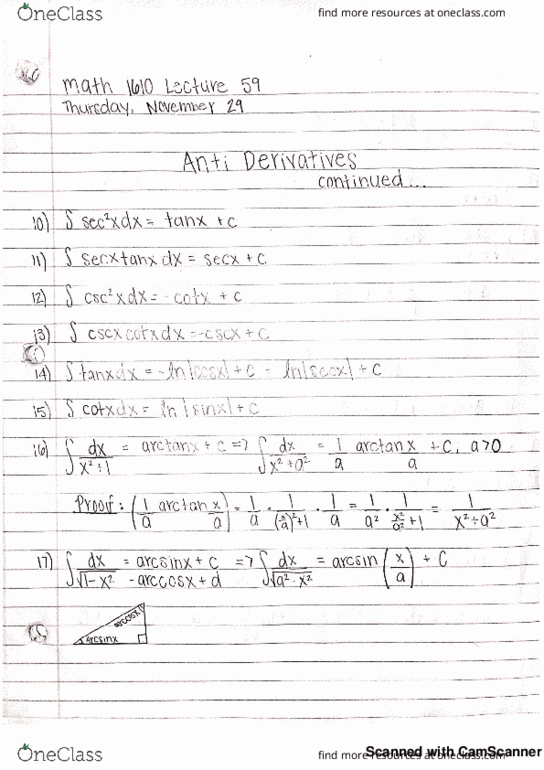 OneClass
find more resources at oneclass.com
Math 1610 Lecture 59
Thursday, November 29
Anti Derivatives
continued...
10) ∫ sec²x dx = tanx + c
11) ∫ secxtanx dx = secx + c
12) ∫ csc²x dx = -cotx + c
13) ∫ cscxcotx dx = -cscx + c
14) ∫ tanx dx = -ln|cosx| + c = ln|secx| + c
15) ∫ cotx dx = ln|sinx| + c
16) ∫ dx/(x²+1) = arctanx + c => ∫ dx/(x²+a²) = 1/a arctan x/a + c, a>0
Proof: (1/a arctan x/a) = 1/a · 1/((x/a)²+1) · 1/a = 1/a² · 1/(x²/a²+1) = 1/(x²+a²)
17) ∫ dx/√(1-x²) = arcsinx + c => ∫ dx/√(a²-x²) = arcsin (x/a) + C
-arccosx + d
arccosx
arcsinx
OneClass
find more resources at oneclass.com
Scanned with CamScanner